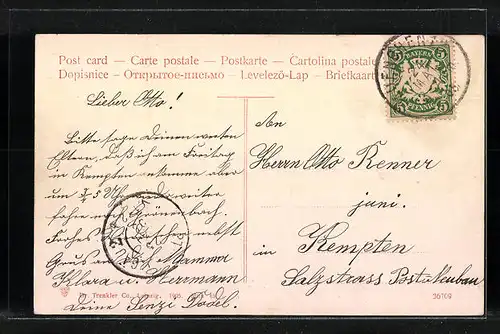 Post card — Carte postale — Postkarte — Cartolina postale
Dopisnice — Открытое-письмо — Levelező-Lap — Briefkaart
5 5
PFENNIG
Lieber Otto!
Bitte sage Deinen werten
Eltern, daß ich am Freitag
in Kempten ankomme aber
um ¾5 Uhr und weiter
fahre nach Grönenbach.
Frohes
Gruss auch Mamma
Klara u. Herrmann
Deine Senzi Dodel.
An
Herrn Otto Renner
juni.
in Kempten
Salzstrass Postneubau
Trenkler Co., Leipzig. 1905.
26709